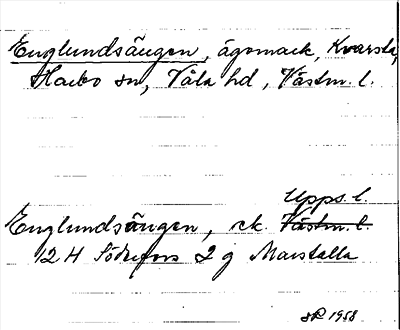 Englundsängen, ägomark, Kvarsta,
Harbo sn, Våla hd, Västm. l.
Upps. l.
Englundsängen, ek. Västm. l.
12 H Söderfors 2 g Marstalla
1958